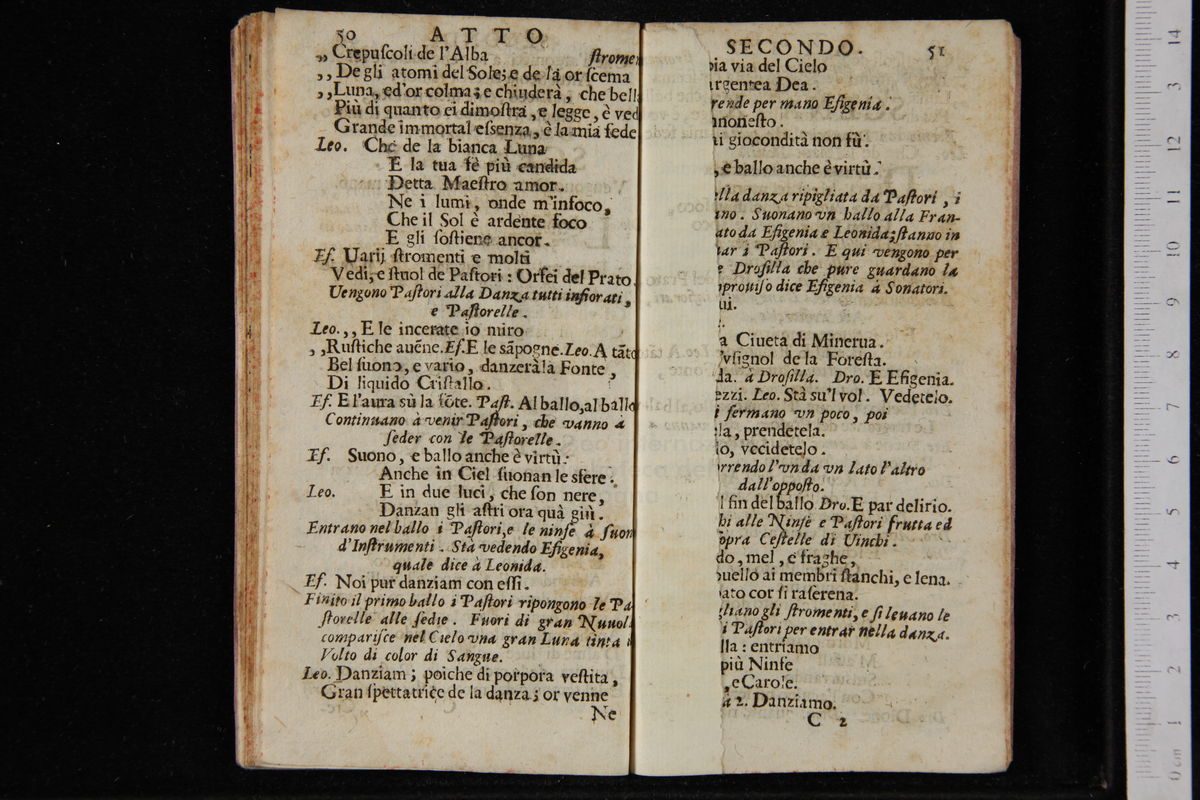 50 ATTO
„ Crepuſcoli de l'Alba ſtrome
„ De gli atomi del Sole; e de la or ſcema
„ Luna, ed'or colma; e chiuderà, che bell
Più di quanto ei dimoſtra, e legge, è ved
Grande immortal eſsenza, è la mia fede
Leo. Che de la bianca Luna
E la tua fè più candida
Detta Maeſtro amor.
Ne i lumi, onde m'infoco,
Che il Sol è ardente foco
E gli ſoſtiene ancor.
Ef. Uarij ſtromenti e molti
Vedi, e ſtuol de Paſtori : Orfei del Prato.
Uengono Paſtori alla Danza tutti infiorati,
e Paſtorelle.
Leo. „ E le incerate io miro
„ Ruſtiche auẽne. Ef. E le sãpogne. Leo. A tãto
Bel ſuono, e vario, danzerà la Fonte,
Di liquido Criſtallo.
Ef. E l'aura sù la fõte. Paſt. Al ballo, al ballo
Continuano à venir Paſtori, che vanno a
ſeder con le Paſtorelle.
Ef. Suono, e ballo anche è virtù:
Anche in Ciel ſuonan le sfere.
Leo. E in due luci, che ſon nere,
Danzan gli aſtri ora quà giù.
Entrano nel ballo i Paſtori, e le ninfe à ſuon
d'Inſtrumenti. Stà vedendo Efigenia,
quale dice à Leonida.
Ef. Noi pur danziam con eſſi.
Finito il primo ballo i Paſtori ripongono le Pa
ſtorelle alle ſedie. Fuori di gran Nuuol
compariſce nel Cielo vna gran Luna tinta
Volto di color di Sangue.
Leo. Danziam; poiche di porpora veſtita,
Gran ſpettatrice de la danza; or venne
Ne
SECONDO. 51
ia via del Cielo
rgentea Dea.
rende per mano Efigenia.
noneſto.
i giocondità non fù.
, e ballo anche è virtù.
lla danza ripigliata da Paſtori, i
no. Suonano vn ballo alla Fran-
ato da Efigenia e Leonida; ſtanno in
ar i Paſtori. E qui vengono per
e Droſilla che pure guardano la
prouiſo dice Efigenia à Sonatori.
ui.
a Ciueta di Minerua.
uſignol de la Foreſta.
da. à Droſilla. Dro. E Efigenia.
ezzi. Leo. Stà sù'l vol. Vedetelo.
i fermano vn poco, poi
la, prendetela.
lo, vccidetelo.
rrendo l'vn da vn lato l'altro
dall'oppoſto.
l fin del ballo Dro. E par delirio.
hi alle Ninfe e Paſtori frutta ed
opra Ceſtelle di Uinchi.
do, mel, e fraghe,
uello ai membri ſtanchi, e lena.
ato cor ſi raſerena.
gliano gli ſtromenti, e ſi leuano le
i Paſtori per entrar nella danza.
lla : entriamo
più Ninfe
, e Carole.
à 2. Danziamo.
C 2